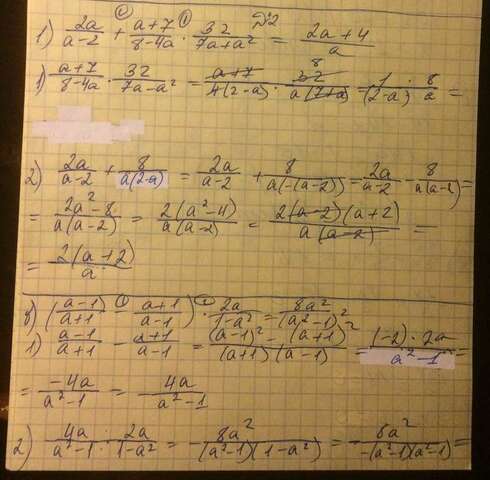 ② ① №2
1) 2a/(a-2) + (a+7)/(8-4a) · 32/(7a+a²) = (2a+4)/a
1) (a+7)/(8-4a) · 32/(7a-a²) = (a+7)/(4(2-a)) · 32/(a(7+a)) = 1/(2-a) · 8/a =
8
2) 2a/(a-2) + 8/(a(2-a)) = 2a/(a-2) + 8/(a(-(a-2))) = 2a/(a-2) - 8/(a(a-2)) =
= (2a²-8)/(a(a-2)) = 2(a²-4)/(a(a-2)) = 2(a-2)(a+2)/(a(a-2)) =
= 2(a+2)/a
в) ((a-1)/(a+1) ① - (a+1)/(a-1)) ② · 2a/(1-a²) = 8a²/(a²-1)²
1) (a-1)/(a+1) - (a+1)/(a-1) = ((a-1)² - (a+1)²)/((a+1)(a-1)) = (-2)·2a/(a²-1) =
= -4a/(a²-1) = 4a/(a²-1)
2) 4a/(a²-1) · 2a/(1-a²) = - 8a²/((a²-1)(1-a²)) = 8a²/(-(a²-1)(a²-1)) =